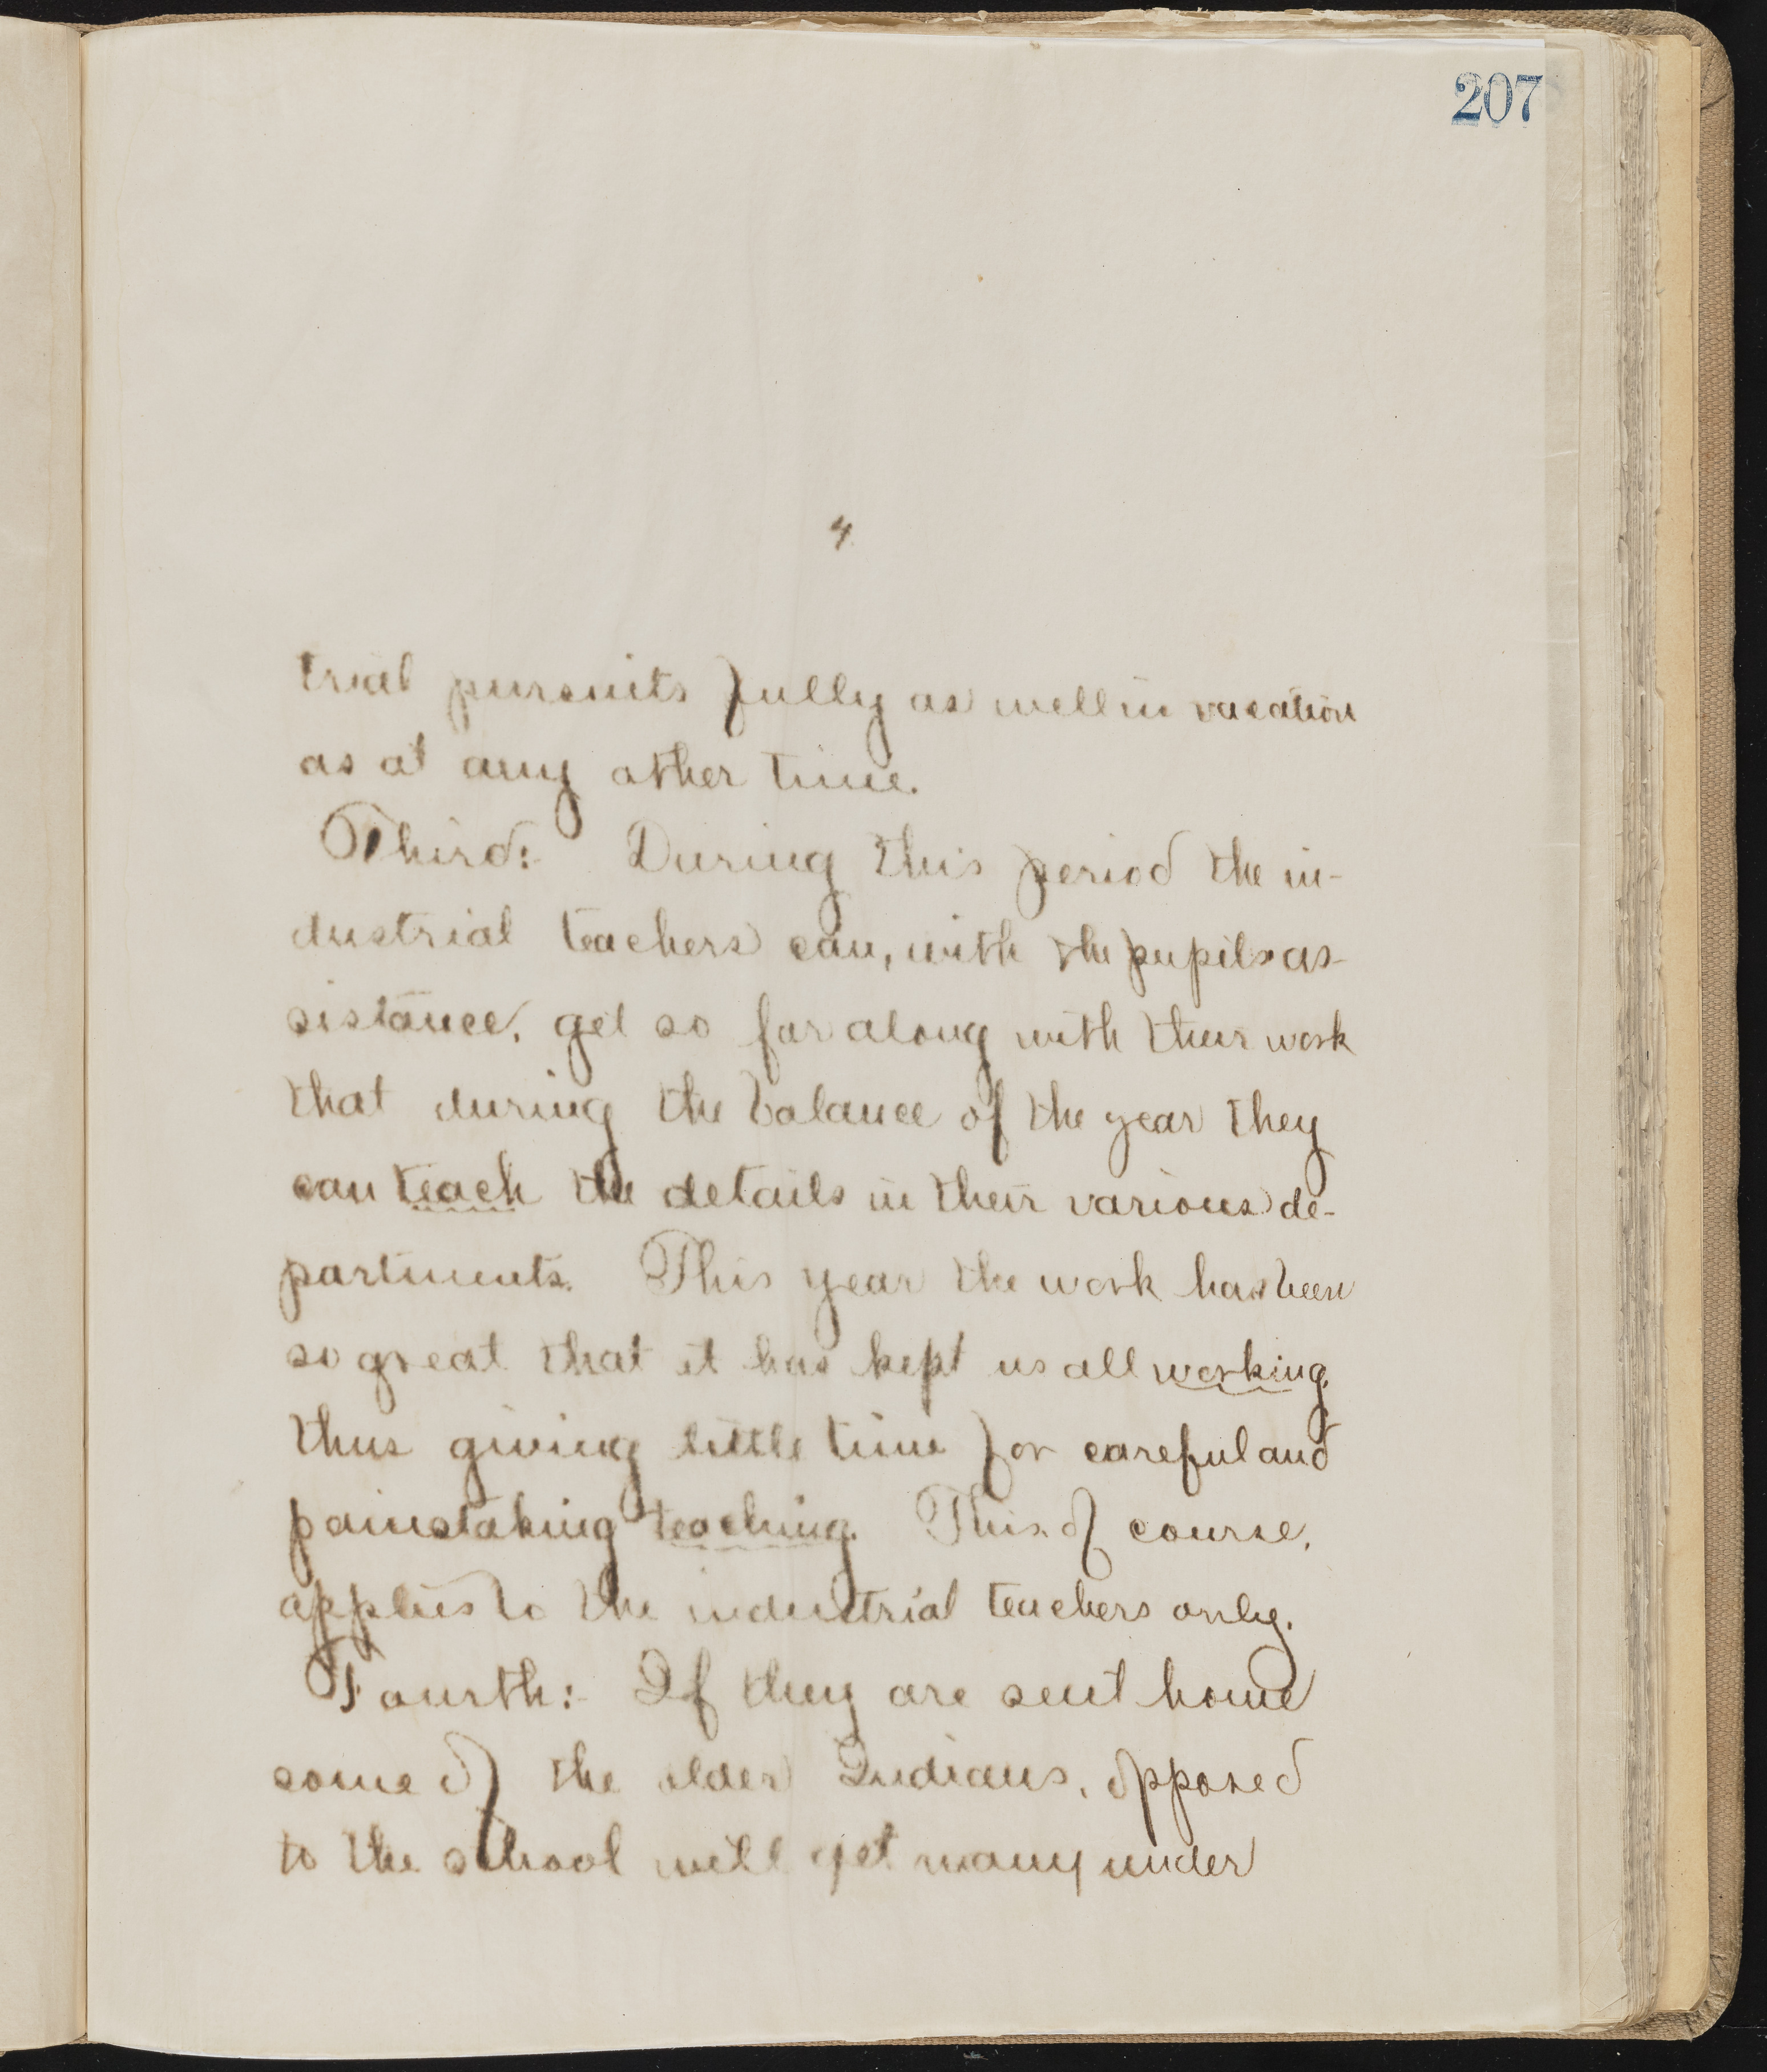 207
4
trial pursuits fully as well in vacation
as at any other time.
Third:- During this period the in-
dustrial teachers can, with the pupils as-
sistance, get so far along with their work
that during the balance of the year they
can teach the details in their various de-
partments. This year the work has been
so great that it has kept us all working,
thus giving little time for careful and
painstaking teaching. This of course,
applies to the industrial teachers only.
Fourth:- If they are sent home
some of the older Indians, opposed
to the school will get many under